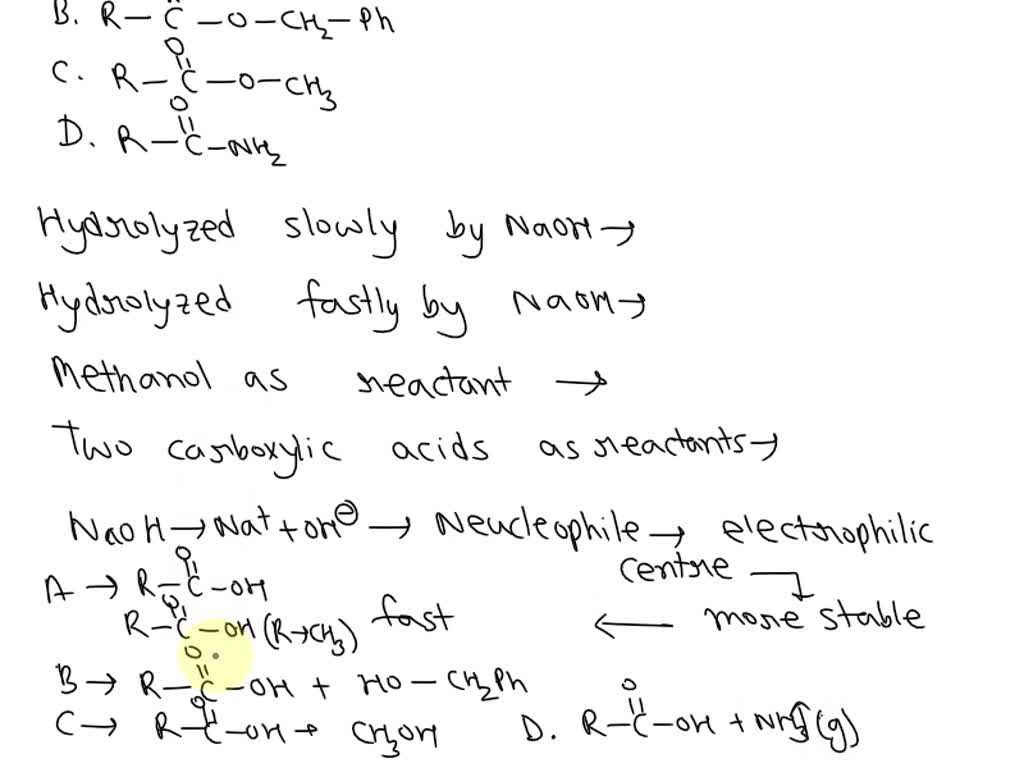 B. R-C-O-CH2-Ph
O
C. R-C-O-CH3
O
D. R-C-NH2
Hydrolyzed slowly by NaOH→
Hydrolyzed fastly by NaOH→
Methanol as reactant →
Two carboxylic acids as reactants→
NaOH→Na⁺+OH⊖→ Neucleophile→ electrophilic
centre
A → R-C-OH
O
more stable
←
R-C-OH (R→CH3) fast
O
B → R-C-OH + HO-CH2Ph
O
C → R-C-OH + CH3OH
O
D. R-C-OH + NH3(g)
O